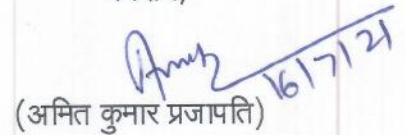 16/7/21
(अमित कुमार प्रजापति)